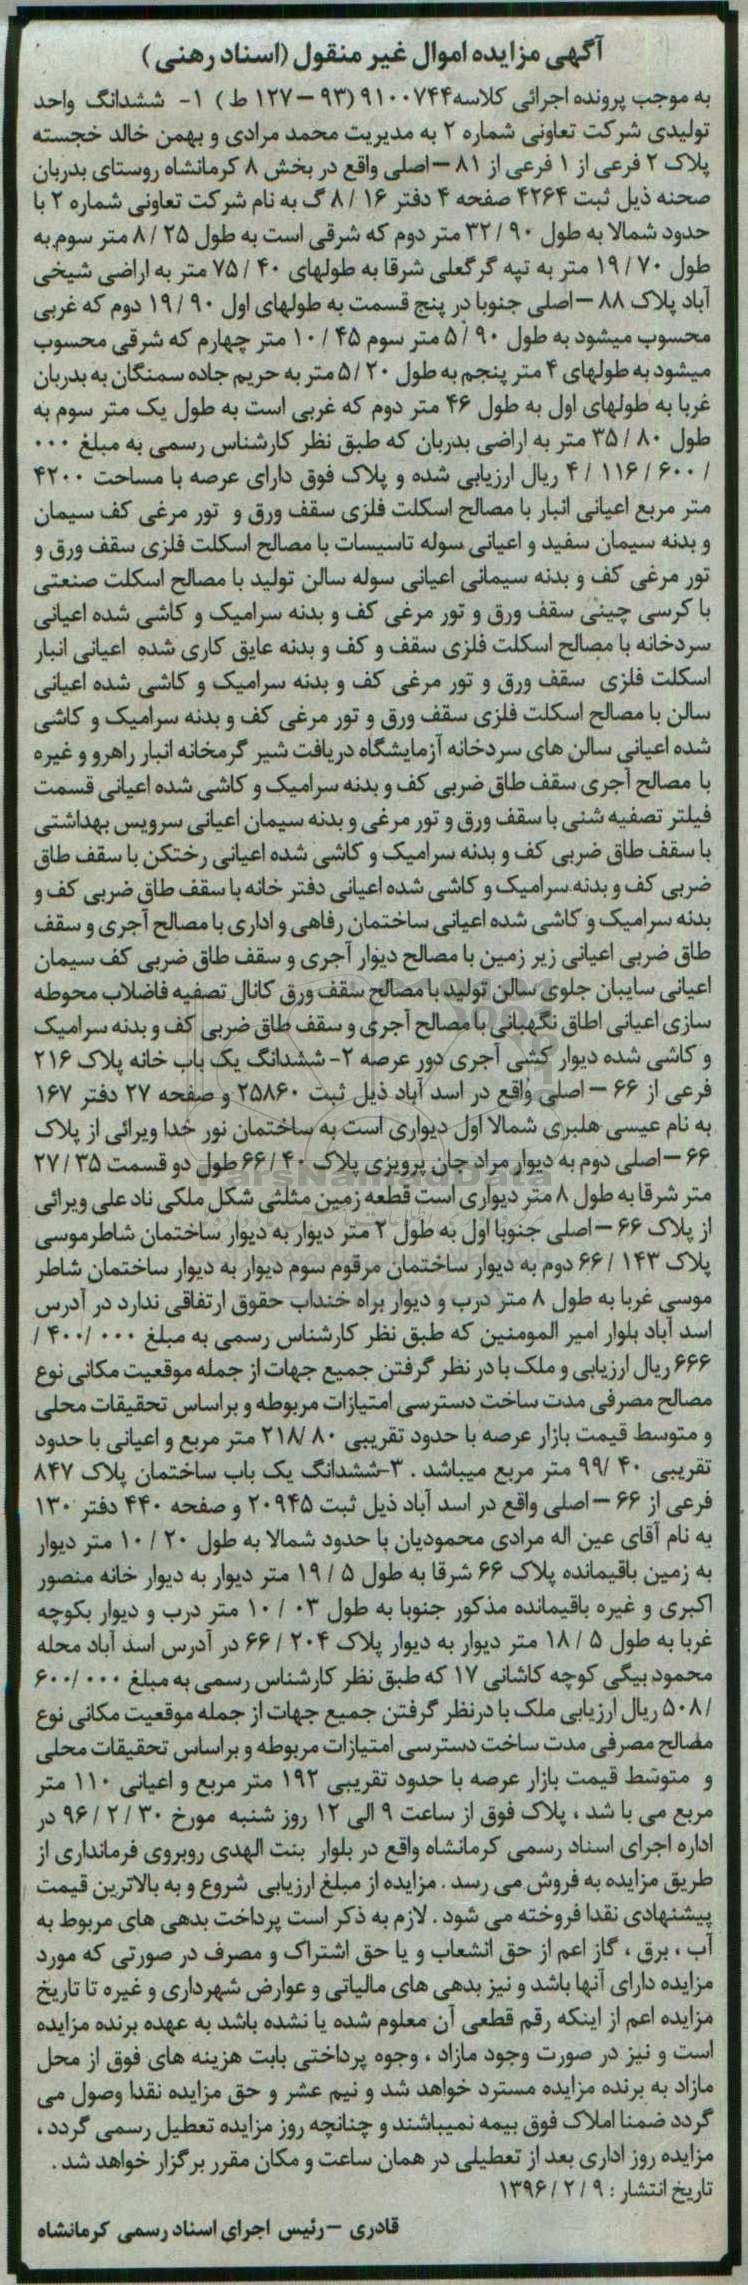 آگهی مزایده اموال غیر منقول (اسناد رهنی)
به موجب پرونده اجرائی کلاسه ۹۱۰۰۷۴۴ (۹۳ – ۱۲۷ ط) ۱- ششدانگ واحد
تولیدی شرکت تعاونی شماره ۲ به مدیریت محمد مرادی و بهمن خالد خجسته
پلاک ۲ فرعی از ۱ فرعی از ۸۱ – اصلی واقع در بخش ۸ کرمانشاه روستای بدربان
صحنه ذیل ثبت ۴۲۶۴ صفحه ۴ دفتر ۱۶ / ۸ گ به نام شرکت تعاونی شماره ۲ با
حدود شمالا به طول ۹۰ / ۳۲ متر دوم که شرقی است به طول ۲۵ / ۸ متر سوم به
طول ۷۰ / ۱۹ متر به تپه گرگعلی شرقا به طولهای ۴۰ / ۷۵ متر به اراضی شیخی
آباد پلاک ۸۸ – اصلی جنوبا در پنج قسمت به طولهای اول ۹۰ / ۱۹ دوم که غربی
محسوب میشود به طول ۹۰ / ۵ متر سوم ۴۵ / ۱۰ متر چهارم که شرقی محسوب
میشود به طولهای ۴ متر پنجم به طول ۲۰ / ۵ متر به حریم جاده سمنگان به بدربان
غربا به طولهای اول به طول ۴۶ متر دوم که غربی است به طول یک متر سوم به
طول ۸۰ / ۳۵ متر به اراضی بدربان که طبق نظر کارشناس رسمی به مبلغ ۰۰۰
/ ۶۰۰ / ۱۱۶ / ۴ ریال ارزیابی شده و پلاک فوق دارای عرصه با مساحت ۴۲۰۰
متر مربع اعیانی انبار با مصالح اسکلت فلزی سقف ورق و تور مرغی کف سیمان
و بدنه سیمان سفید و اعیانی سوله تاسیسات با مصالح اسکلت فلزی سقف ورق و
تور مرغی کف و بدنه سیمانی اعیانی سوله سالن تولید با مصالح اسکلت صنعتی
با کرسی چینی سقف ورق و تور مرغی کف و بدنه سرامیک و کاشی شده اعیانی
سردخانه با مصالح اسکلت فلزی سقف و کف و بدنه عایق کاری شده اعیانی انبار
اسکلت فلزی سقف ورق و تور مرغی کف و بدنه سرامیک و کاشی شده اعیانی
سالن با مصالح اسکلت فلزی سقف ورق و تور مرغی کف و بدنه سرامیک و کاشی
شده اعیانی سالن های سردخانه آزمایشگاه دریافت شیر گرمخانه انبار راهرو و غیره
با مصالح آجری سقف طاق ضربی کف و بدنه سرامیک و کاشی شده اعیانی قسمت
فیلتر تصفیه شنی با سقف ورق و تور مرغی و بدنه سیمان اعیانی سرویس بهداشتی
با سقف طاق ضربی کف و بدنه سرامیک و کاشی شده اعیانی رختکن با سقف طاق
ضربی کف و بدنه سرامیک و کاشی شده اعیانی دفتر خانه با سقف طاق ضربی کف و
بدنه سرامیک و کاشی شده اعیانی ساختمان رفاهی و اداری با مصالح آجری و سقف
طاق ضربی اعیانی زیر زمین با مصالح دیوار آجری و سقف طاق ضربی کف سیمان
اعیانی سایبان جلوی سالن تولید با مصالح سقف ورق کانال تصفیه فاضلاب محوطه
سازی اعیانی اطاق نگهبانی با مصالح آجری و سقف طاق ضربی کف و بدنه سرامیک
و کاشی شده دیوار کشی آجری دور عرصه ۲- ششدانگ یک باب خانه پلاک ۲۱۶
فرعی از ۶۶ – اصلی واقع در اسد آباد ذیل ثبت ۲۵۸۶۰ و صفحه ۲۷ دفتر ۱۶۷
به نام عیسی هلبری شمالا اول دیواری است به ساختمان نور خدا ویرائی از پلاک
۶۶ – اصلی دوم به دیوار مراد جان پرویزی پلاک ۴۰ / ۶۶ طول دو قسمت ۳۵ / ۲۷
متر شرقا به طول ۸ متر دیواری است قطعه زمین مثلثی شکل ملکی ناد علی ویرائی
از پلاک ۶۶ – اصلی جنوبا اول به طول ۲ متر دیوار به دیوار ساختمان شاطرموسی
پلاک ۱۴۳ / ۶۶ دوم به دیوار ساختمان مرقوم سوم دیوار به دیوار ساختمان شاطر
موسی غربا به طول ۸ متر درب و دیوار براه خنداب حقوق ارتفاقی ندارد در آدرس
اسد آباد بلوار امیر المومنین که طبق نظر کارشناس رسمی به مبلغ ۰۰۰ / ۴۰۰ /
۶۶۶ ریال ارزیابی و ملک با در نظر گرفتن جمیع جهات از جمله موقعیت مکانی نوع
مصالح مصرفی مدت ساخت دسترسی امتیازات مربوطه و براساس تحقیقات محلی
و متوسط قیمت بازار عرصه با حدود تقریبی ۸۰ / ۲۱۸ متر مربع و اعیانی با حدود
تقریبی ۴۰ / ۹۹ متر مربع میباشد . ۳-ششدانگ یک باب ساختمان پلاک ۸۴۷
فرعی از ۶۶ – اصلی واقع در اسد آباد ذیل ثبت ۲۰۹۴۵ و صفحه ۴۴۰ دفتر ۱۳۰
به نام آقای عین اله مرادی محمودیان با حدود شمالا به طول ۲۰ / ۱۰ متر دیوار
به زمین باقیمانده پلاک ۶۶ شرقا به طول ۵ / ۱۹ متر دیوار به دیوار خانه منصور
اکبری و غیره باقیمانده مذکور جنوبا به طول ۰۳ / ۱۰ متر درب و دیوار بکوچه
غربا به طول ۵ / ۱۸ متر دیوار به دیوار پلاک ۲۰۴ / ۶۶ در آدرس اسد آباد محله
محمود بیگی کوچه کاشانی ۱۷ که طبق نظر کارشناس رسمی به مبلغ ۰۰۰ / ۶۰۰
/ ۵۰۸ ریال ارزیابی ملک با درنظر گرفتن جمیع جهات از جمله موقعیت مکانی نوع
مصالح مصرفی مدت ساخت دسترسی امتیازات مربوطه و براساس تحقیقات محلی
و متوسط قیمت بازار عرصه با حدود تقریبی ۱۹۲ متر مربع و اعیانی ۱۱۰ متر
مربع می با شد ، پلاک فوق از ساعت ۹ الی ۱۲ روز شنبه مورخ ۳۰ / ۲ / ۹۶ در
اداره اجرای اسناد رسمی کرمانشاه واقع در بلوار بنت الهدی روبروی فرمانداری از
طریق مزایده به فروش می رسد . مزایده از مبلغ ارزیابی شروع و به بالاترین قیمت
پیشنهادی نقدا فروخته می شود . لازم به ذکر است پرداخت بدهی های مربوط به
آب ، برق ، گاز اعم از حق انشعاب و یا حق اشتراک و مصرف در صورتی که مورد
مزایده دارای آنها باشد و نیز بدهی های مالیاتی و عوارض شهرداری و غیره تا تاریخ
مزایده اعم از اینکه رقم قطعی آن معلوم شده یا نشده باشد به عهده برنده مزایده
است و نیز در صورت وجود مازاد ، وجوه پرداختی بابت هزینه های فوق از محل
مازاد به برنده مزایده مسترد خواهد شد و نیم عشر و حق مزایده نقدا وصول می
گردد ضمنا املاک فوق بیمه نمیباشند و چنانچه روز مزایده تعطیل رسمی گردد ،
مزایده روز اداری بعد از تعطیلی در همان ساعت و مکان مقرر برگزار خواهد شد .
تاریخ انتشار : ۹ / ۲ / ۱۳۹۶
قادری – رئیس اجرای اسناد رسمی کرمانشاه
ParsNamadData